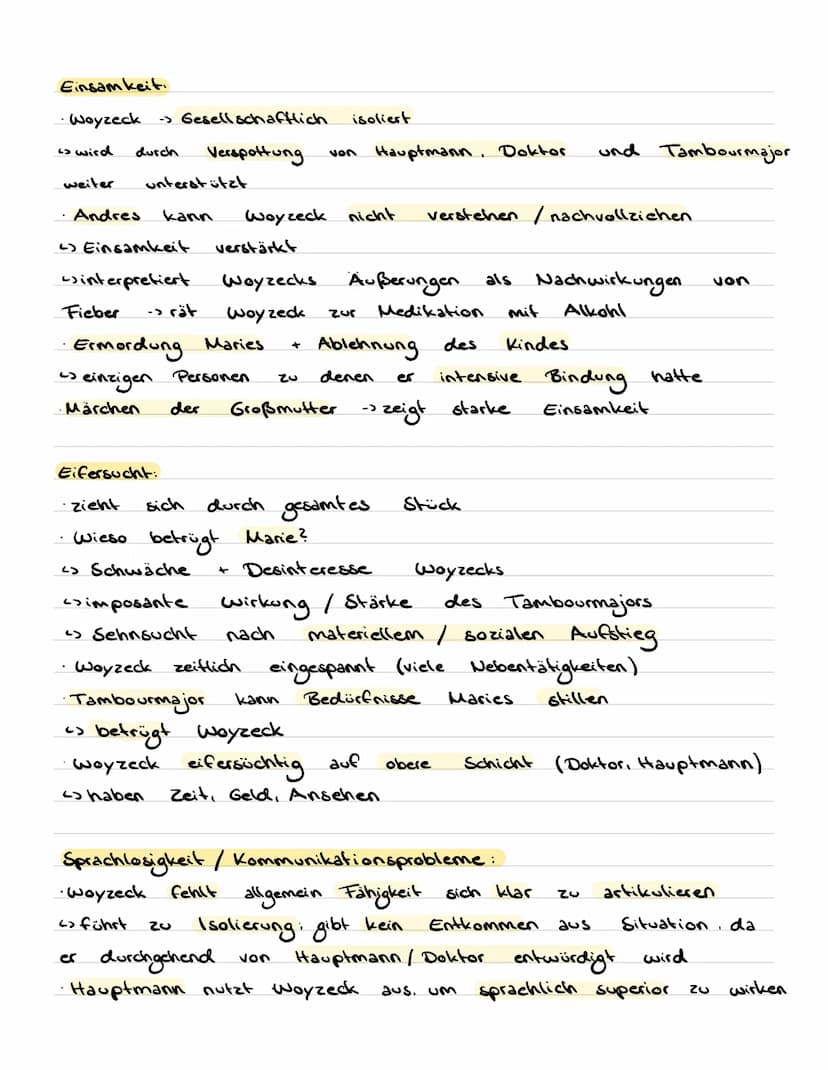 Einsamkeit:
· Woyzeck -> Gesellschaftlich isoliert
↳ wird durch Verspottung von Hauptmann, Doktor und Tambourmajor
weiter unterstützt
· Andres kann Woyzeck nicht verstehen / nachvollziehen
↳ Einsamkeit verstärkt
↳ interpretiert Woyzecks Äußerungen als Nachwirkungen von
Fieber -> rät Woyzeck zur Medikation mit Alkohl
· Ermordung Maries + Ablehnung des Kindes
↳ einzigen Personen zu denen er intensive Bindung hatte
· Märchen der Großmutter -> zeigt starke Einsamkeit
Eifersucht:
· zieht sich durch gesamtes Stück
· Wieso betrügt Marie?
↳ Schwäche + Desinteresse Woyzecks
↳ imposante Wirkung / Stärke des Tambourmajors
↳ Sehnsucht nach materiellem / sozialen Aufstieg
· Woyzeck zeitlich eingespannt (viele Nebentätigkeiten)
· Tambourmajor kann Bedürfnisse Maries stillen
↳ betrügt Woyzeck
· Woyzeck eifersüchtig auf obere Schicht (Doktor, Hauptmann)
↳ haben Zeit, Geld, Ansehen
Sprachlosigkeit / Kommunikationsprobleme:
· Woyzeck fehlt allgemein Fähigkeit sich klar zu artikulieren
↳ führt zu Isolierung; gibt kein Entkommen aus Situation, da
er durchgehend von Hauptmann / Doktor entwürdigt wird
· Hauptmann nutzt Woyzeck aus, um sprachlich superior zu wirken